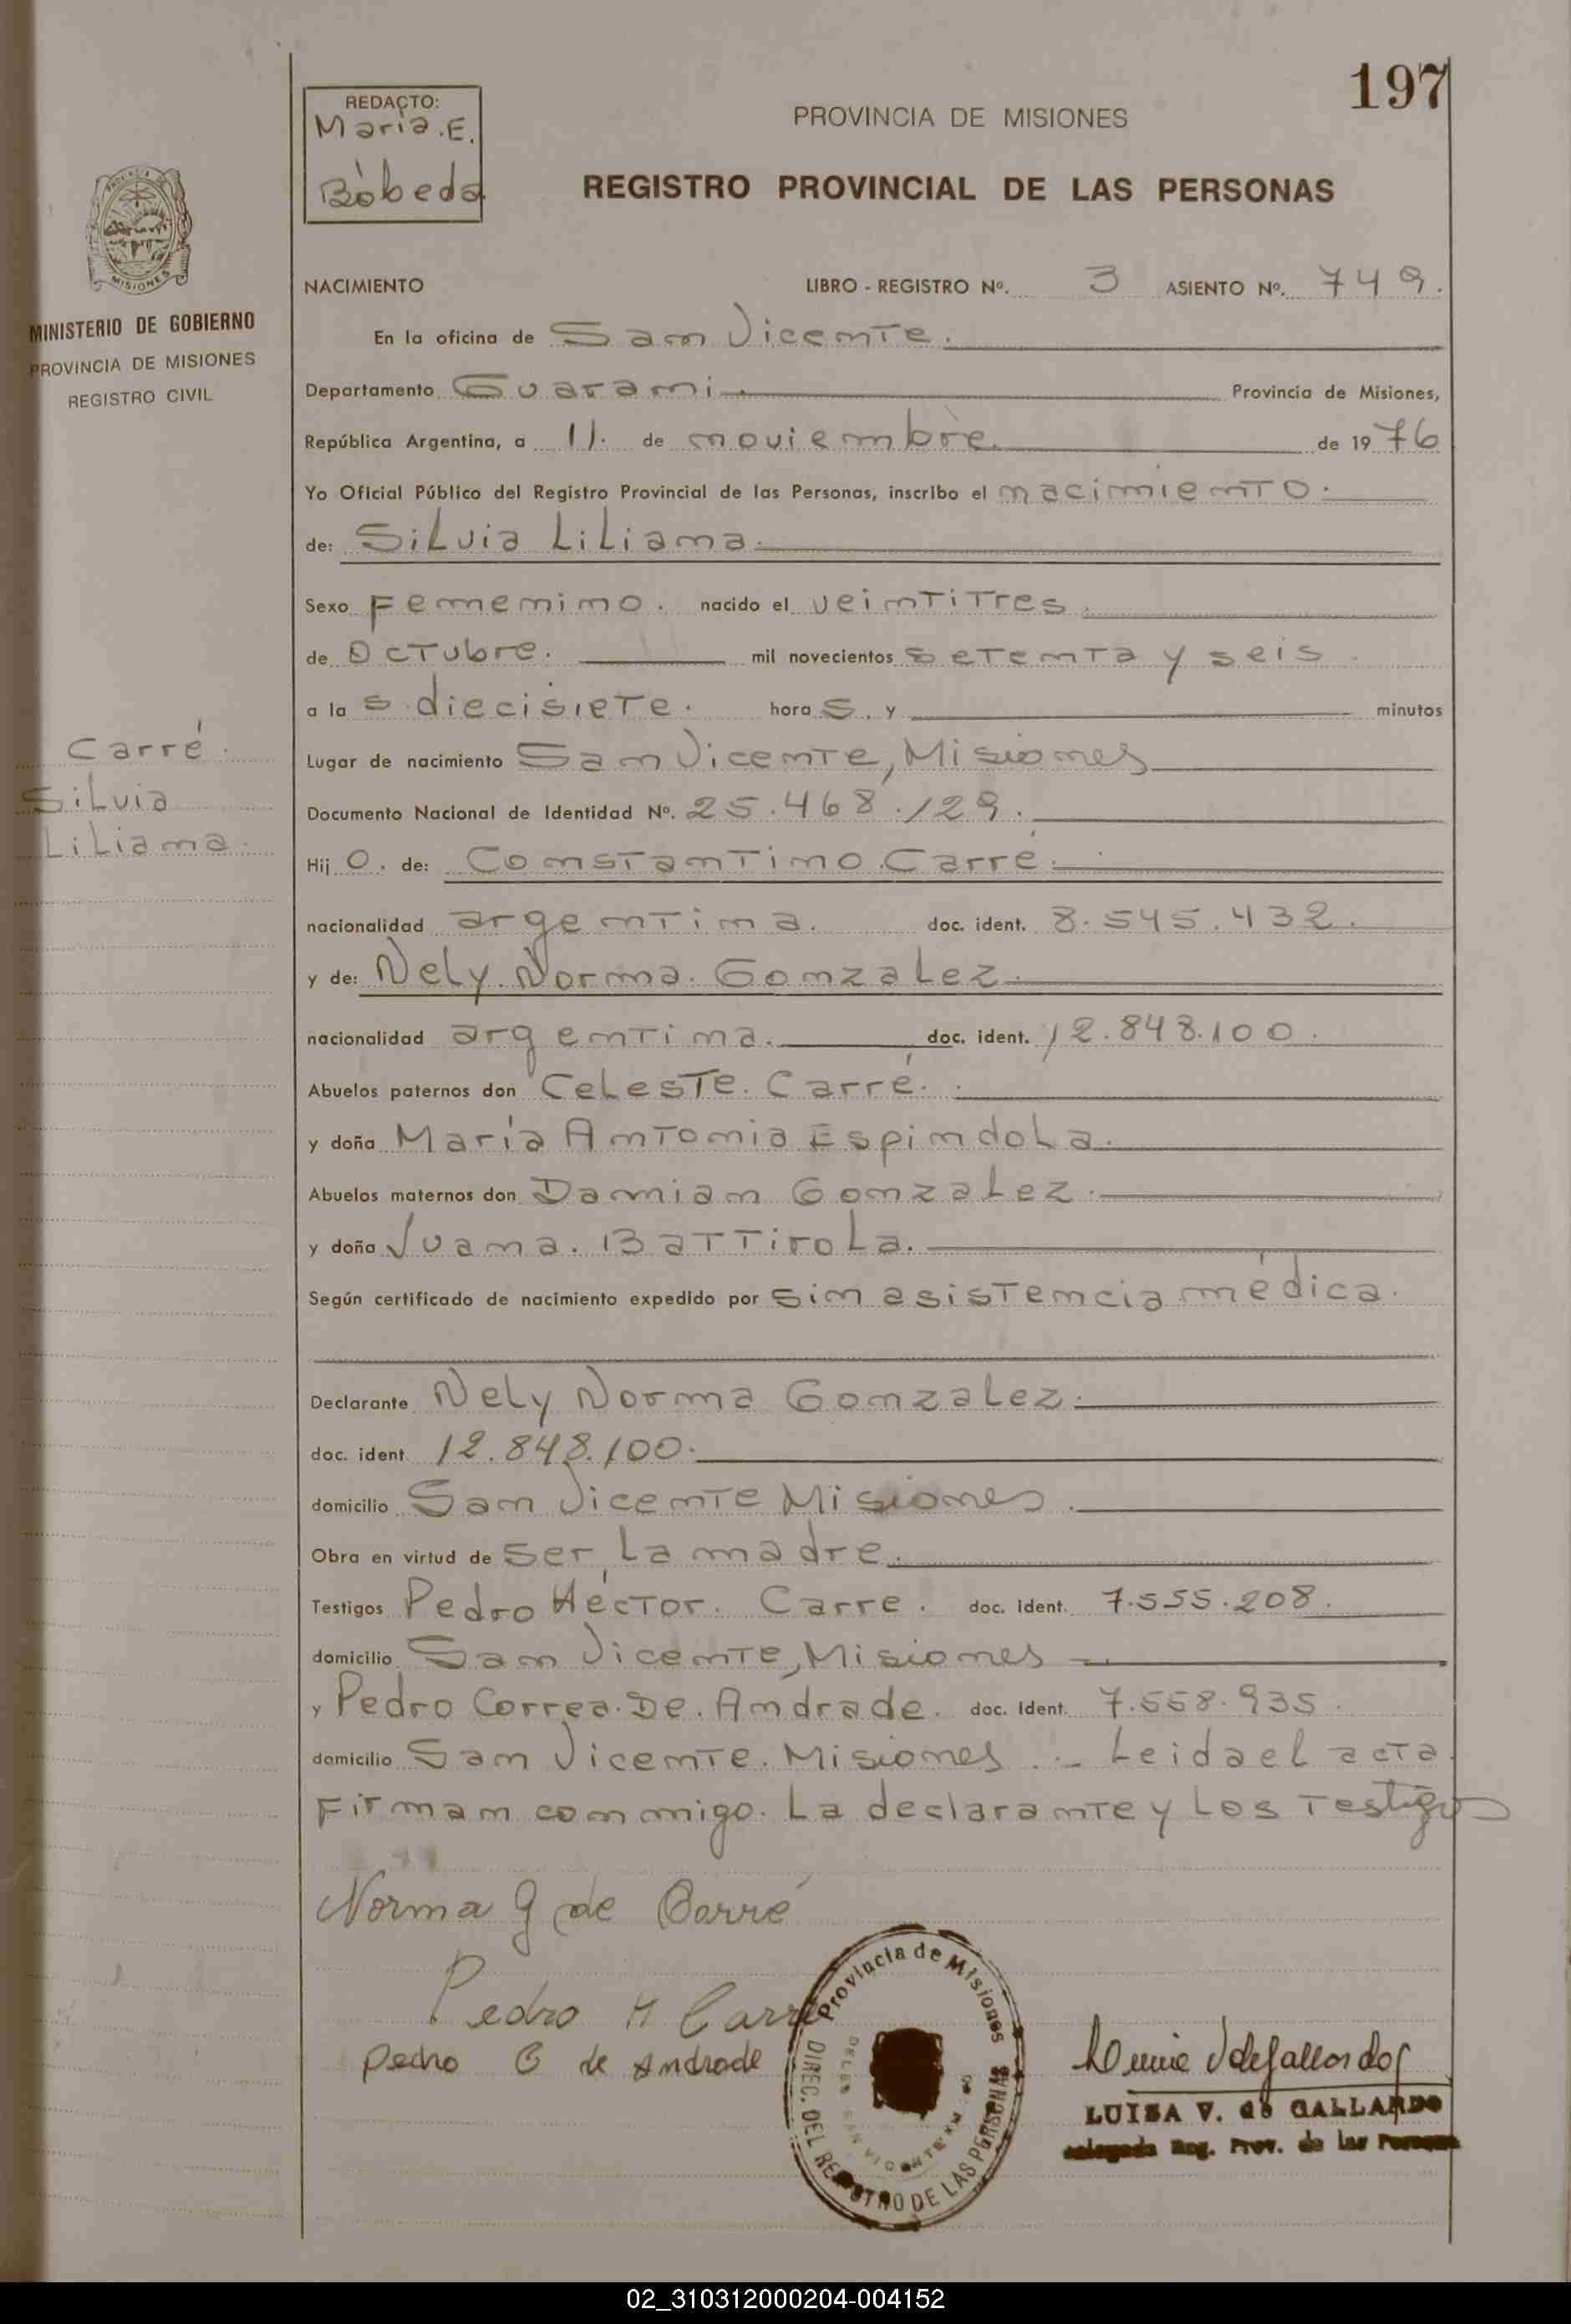 197
REDACTO:
Maria.E.
Bóbeda
PROVINCIA DE MISIONES
REGISTRO PROVINCIAL DE LAS PERSONAS
PROVINCIA DE
MISIONES
MINISTERIO DE GOBIERNO
PROVINCIA DE MISIONES
REGISTRO CIVIL
NACIMIENTO LIBRO - REGISTRO Nº. 3 ASIENTO Nº. 749.
En la oficina de San Vicente.
Departamento Guarani. Provincia de Misiones,
República Argentina, a 11. de noviembre. de 1976
Yo Oficial Público del Registro Provincial de las Personas, inscribo el nacimiento.
de: Silvia Liliana.
Sexo Femenino. nacido el veintitres.
de Octubre. mil novecientos setenta y seis.
a la s diecisiete. hora s. y minutos
Lugar de nacimiento San Vicente, Misiones
Documento Nacional de Identidad Nº. 25.468.129.
Carré.
Silvia
Liliana.
Hij o. de: Constantino Carré.
nacionalidad argentina. doc. ident. 8.545.432.
y de: Nely. Norma. Gonzalez.
nacionalidad argentina. doc. ident. 12.848.100.
Abuelos paternos don Celeste. Carré.
y doña María Antonia Espindola.
Abuelos maternos don Damian Gonzalez.
y doña Juana. Battirola.
Según certificado de nacimiento expedido por sin asistencia médica.
Declarante Nely Norma Gonzalez.
doc. ident. 12.848.100.
domicilio San Vicente Misiones.
Obra en virtud de ser la madre.
Testigos Pedro Héctor. Carre. doc. ident. 7.555.208.
domicilio San Vicente, Misiones
y Pedro Correa. De. Andrade. doc. ident. 7.558.935.
domicilio San Vicente. Misiones .- Leida el acta
Firman conmigo. La declarante y los testigos
Norma G de Carré
Pedro H Carré
Pedro C de Andrade
Provincia de Misiones
DIREC. DEL REGISTRO DE LAS PERSONAS
LUISA V. de GALLARDO
Delegada Reg. Prov. de las Personas
02_310312000204-004152